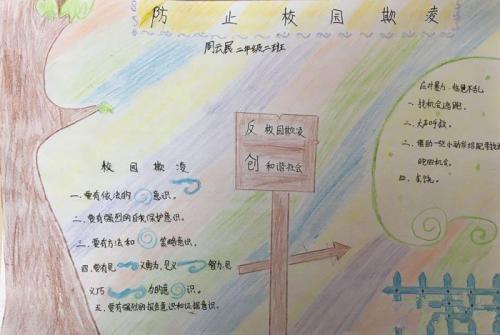 防止校园欺凌
周云展 二年级二班
校园欺凌
一、要有依法的意识。
二、要有强烈的自我保护意识。
三、要有方法和策略意识。
四、要有见义勇为,见义智为,见
义巧为的意识。
五、要有强烈的报告意识和证据意识。
反校园欺凌
创和谐社会
应对暴力,临危不乱
一、找机会逃跑。
二、大声呼救。
三、借助一些小动作给自己寻找逃
跑的机会。
四、求饶。